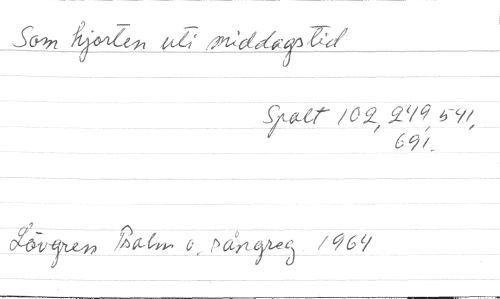 Som hjorten uti middagstid
Spalt 102, 249, 541,
691.
Lövgren Psalm o. sångreg 1964